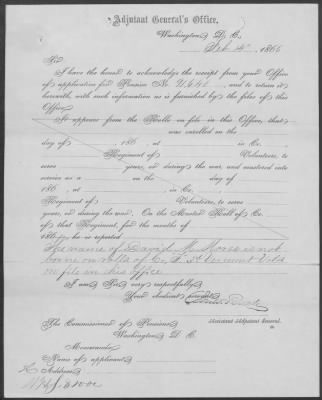 Adjutant General's Office,
Washington, D. C.
Feb 14", 1866
Sir:
I have the honor to acknowledge the receipt from your Office
of application for Pension No. and to return it
herewith, with such information as is furnished by the files of this
Office.
It appears from the Rolls on file in this Office, that
was enrolled on the
day of , 186 , at in Co.
Regiment of Volunteers, to
serve years, or during the war, and mustered into
service as a on the day of
186 , at , in Co.
Regiment of Volunteers, to serve
years, or during the war. On the Muster Roll of Co.
of that Regiment, for the months of
186 , he is reported
The name of David M. Morse is not
borne on rolls of Co. F. 5t Vermont Vols
on file in this office
I am, Sir, very respectfully,
Your obedient servant,
Assistant Adjutant General.
The Commissioner of Pensions,
Washington, D. C.
Memoranda:
Name of applicant
Address